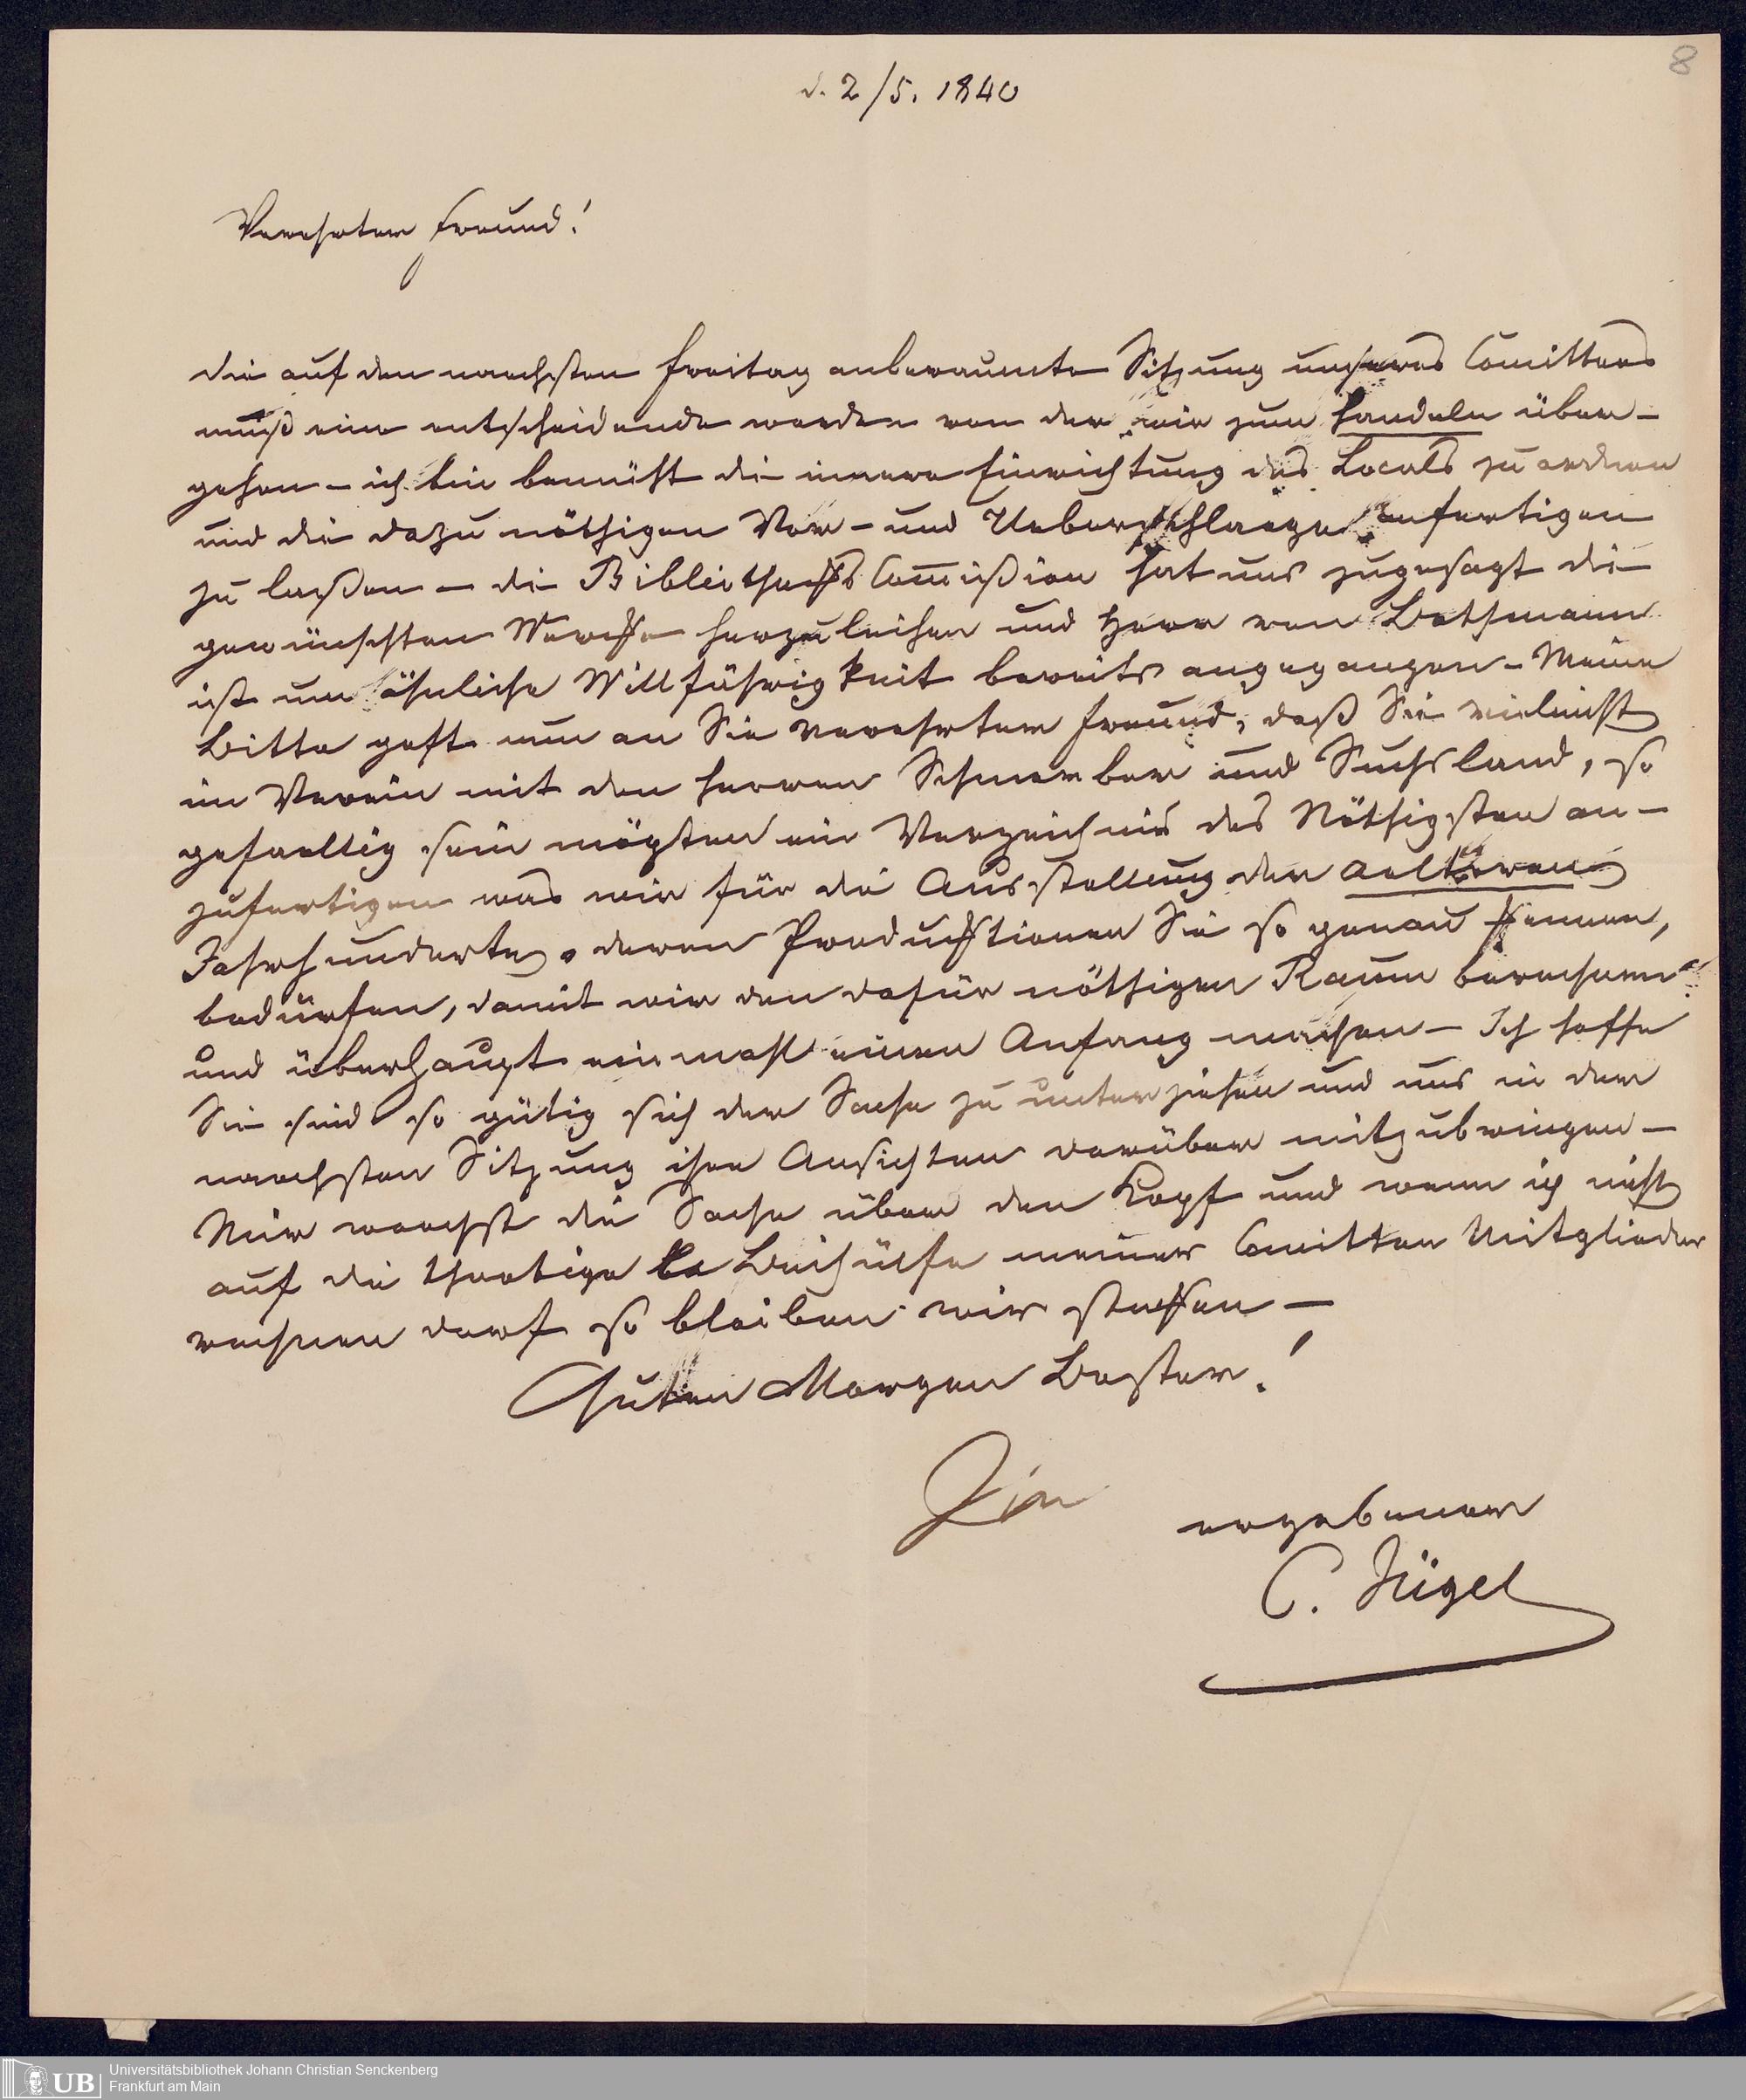 8
d. 2/5. 1840
Verehrter Freund!
die auf den naechsten Freitag anberaumte Sitzung unseres Comittees
muß eine entscheidende werden von der wir zum Handeln über-
gehen – ich bin bemüht die innere Einrichtung des Locals zu ordnen
und die dazu nöthigen Vor- und Ueberschlaege anfertigen
zu laßen – die Bibliotheks Com̅ißion hat uns zugesagt die
gewünschten Werke herzuleihen und Herr von Bethmann
ist um ähnliche Willfährigkeit bereits angegangen – Meine
Bitte geht nun an Sie verehrter Freund, daß Sie vieleicht
im Verein mit den Herren Schmerber und Suchsland, so
gefaellig sein mögten ein Verzeichnis des Nöthigsten an-
zufertigen was wir für die Ausstellung der aelteren
Jahrhunderte, deren Producktionen Sie so genau kennen,
bedürfen, damit wir den dafür nöthigen Raum berechnen
und überhaupt einmahl einen Anfang machen – Ich hoffe
Sie sind so gütig sich der Sache zu unterziehen und uns in der
naechsten Sitzung ihre Ansichten darüber mitzubringen –
Mir waechst die Sache über den Kopf und wenn ich nicht
auf die thaetige Beihülfe meiner Comittee Mitglieder
rechnen darf so bleiben wir stecken –
Guten Morgen Bester!
Ihr
ergebener
C. Jügel
UB
Universitätsbibliothek Johann Christian Senckenberg
Frankfurt am Main